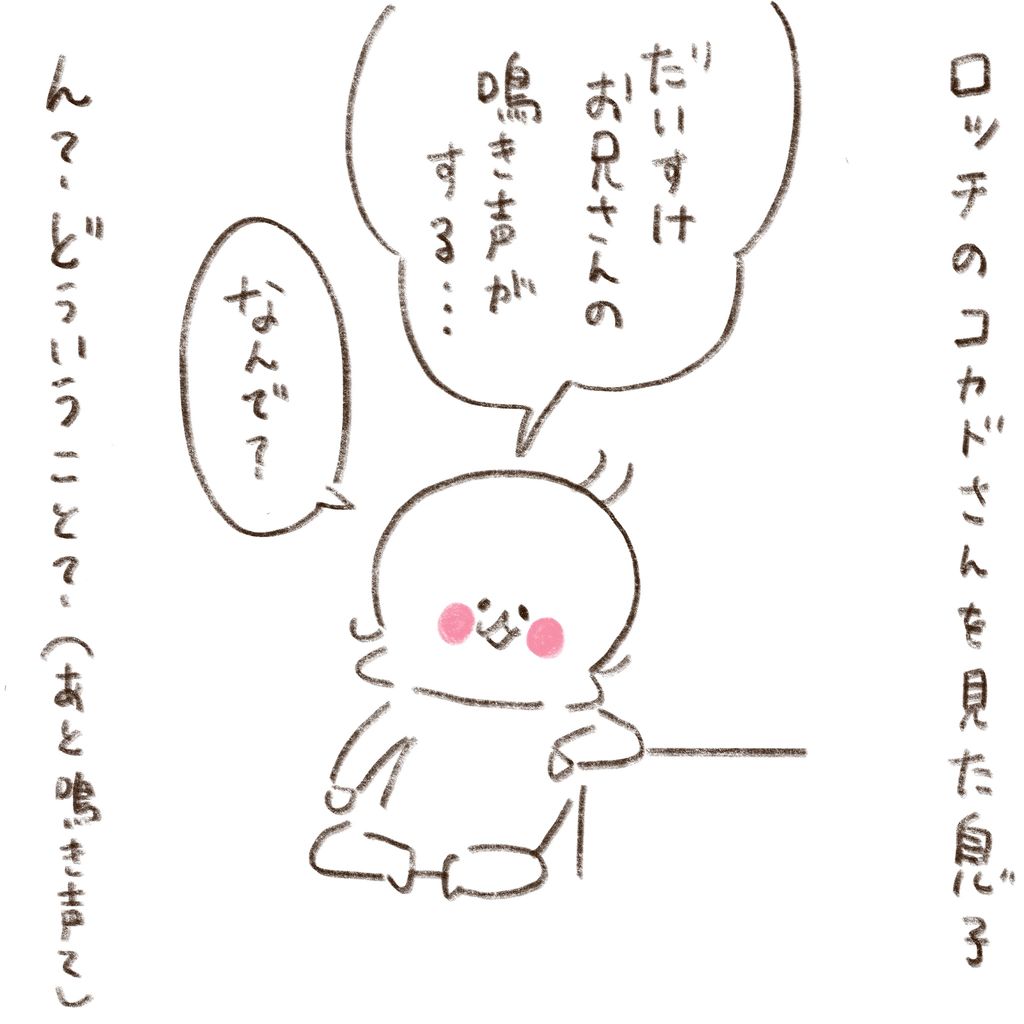 ロッチのコカドさんを見た息子
だいすけ
お兄さんの
鳴き声が
する…
なんで?
ん?どういうこと?(あと鳴き声て)